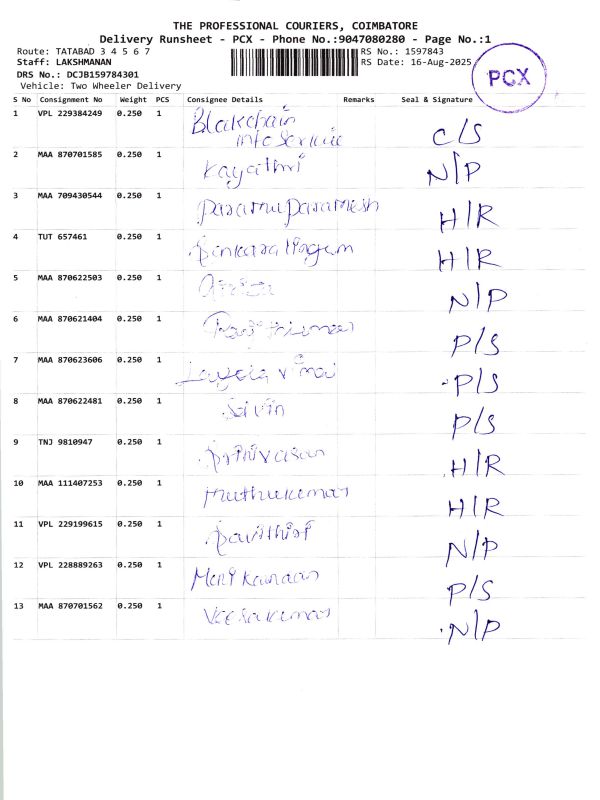 THE PROFESSIONAL COURIERS, COIMBATORE
Delivery Runsheet - PCX - Phone No.:9047080280 - Page No.:1
Route: TATABAD 3 4 5 6 7 RS No.: 1597843
Staff: LAKSHMANAN RS Date: 16-Aug-2025
DRS No.: DCJB159784301
Vehicle: Two Wheeler Delivery
PCX
S No Consignment No Weight PCS Consignee Details Remarks Seal & Signature
1 VPL 229384249 0.250 1 Blakchain
info Service C/S
2 MAA 870701585 0.250 1 Kayathri N/P
3 MAA 709430544 0.250 1 Paramu paramesh H/R
4 TUT 657461 0.250 1 Sankaralingam H/R
5 MAA 870622503 0.250 1 N/P
6 MAA 870621404 0.250 1 P/S
7 MAA 870623606 0.250 1 Layola P/S
8 MAA 870622481 0.250 1 Selvin P/S
9 TNJ 9810947 0.250 1 Srinivasan H/R
10 MAA 111407253 0.250 1 Muthukumar H/R
11 VPL 229199615 0.250 1 N/P
12 VPL 228889263 0.250 1 Manikandan P/S
13 MAA 870701562 0.250 1 Veerakumar N/P